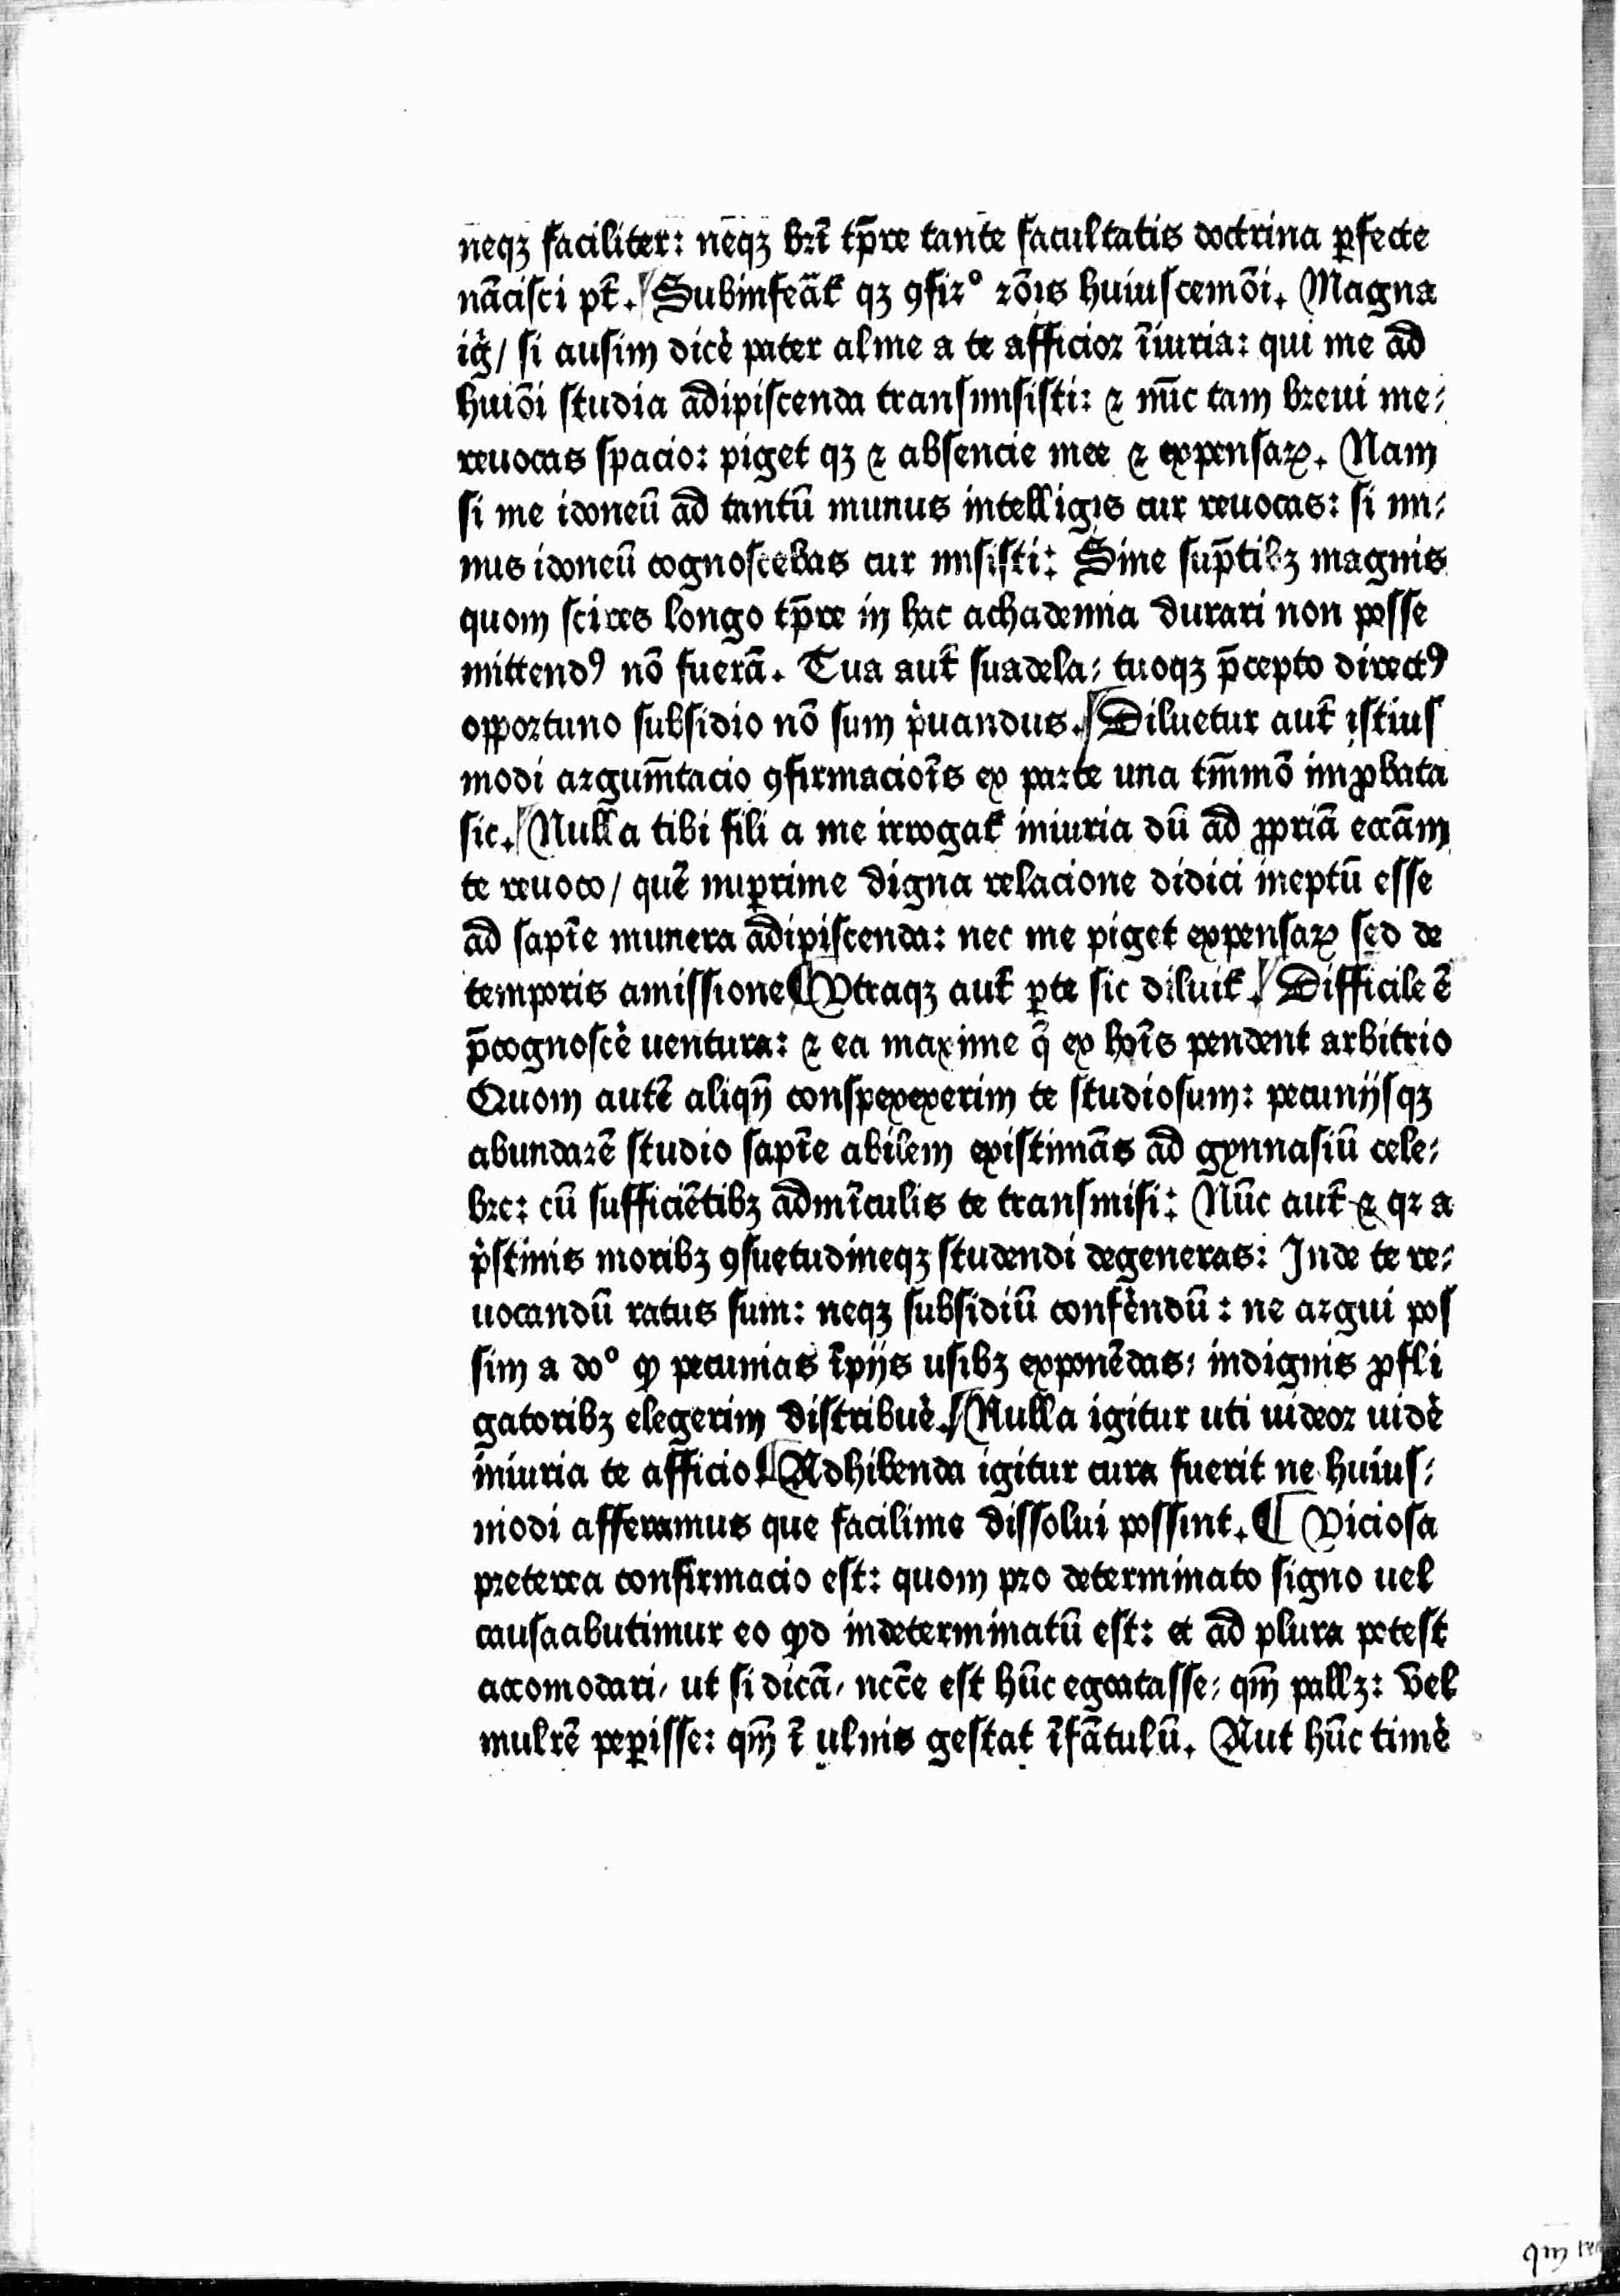 neqꝫ faciliter: neqꝫ breī tp̄re tante facultatis doctrina ꝑfecte
nācisci pt̄. Subinfeāt̄ qꝫ ꝯfirº rōis huiuscemōi. Magna
iḡ/ si ausim dicē pater alme a te afficior īiuria: qui me ad
huiōi studia adipiscenda transmisisti: ⁊ nūc tam breui me⸗
reuocas spacio: piget qꝫ ⁊ absencie mee ⁊ expensaꝝ. Nam
si me idoneū ad tantū munus intelligis cur reuocas: si mi⸗
nus idoneū cognoscebas cur misisti: Sine sūptibꝫ magnis
quom scires longo tp̄re in hac achademia durari non posse
mittendꝰ nō fuerā. Tua aut̄ suadela⸗ tuoqꝫ p̄cepto directꝰ
opportuno subsidio nō sum p̍uandus. Diluetur aut̄ istius
modi argum̄tacio ꝯfirmaciōis ex parte una tm̄mō imꝓbata
sic. Nulla tibi fili a me irrogat̄ iniuria dū ad ꝓpriā eccām
te reuoco/ quē nuꝑrime digna relacione didici ineptū esse
ad sapīe munera adipiscenda: nec me piget expensaꝝ sed de
temporis amissione ¶ Vtraqꝫ aut̄ ꝑte sic diluit̄. Difficile ē
p̄cognoscē uentura: ⁊ ea maxime q̄ ex hoīs pendent arbitrio
Quom autē aliqn̄ conspexexerim te studiosum: pecuniisqꝫ
abundarē studio sapīe abilem existimās ad gynnasiū cele⸗
bre: cū sufficiētibꝫ admīculis te transmisi: Nūc aut̄ ⁊ qꝛ a
p̍stinis moribꝫ ꝯsuetudineqꝫ studendi degeneras: Inde te re⸗
uocandū ratus sum: neqꝫ subsidiū confēndū: ne argui pos
sim a doº ꝙ pecunias īpiis usibꝫ exponēdas⸗ indignis ꝓfli
gatoribꝫ elegerim distribuē. Nulla igitur uti uideor uidē
iniuria te afficio ¶ Adhibenda igitur cura fuerit ne huius⸗
modi afferamus que facilime dissolui possint. ¶ Viciosa
preterea confirmacio est: quom pro determinato signo uel
causa abutimur eo ꝙd indeterminatū est: et ad plura potest
accomodari⸗ ut si dicā⸗ nccē est hūc egrotasse⸗ qm̄ pallꝫ: Vel
mulrē peꝑisse: qm̄ ī ulnis gestat īfātulū. Aut hūc timē